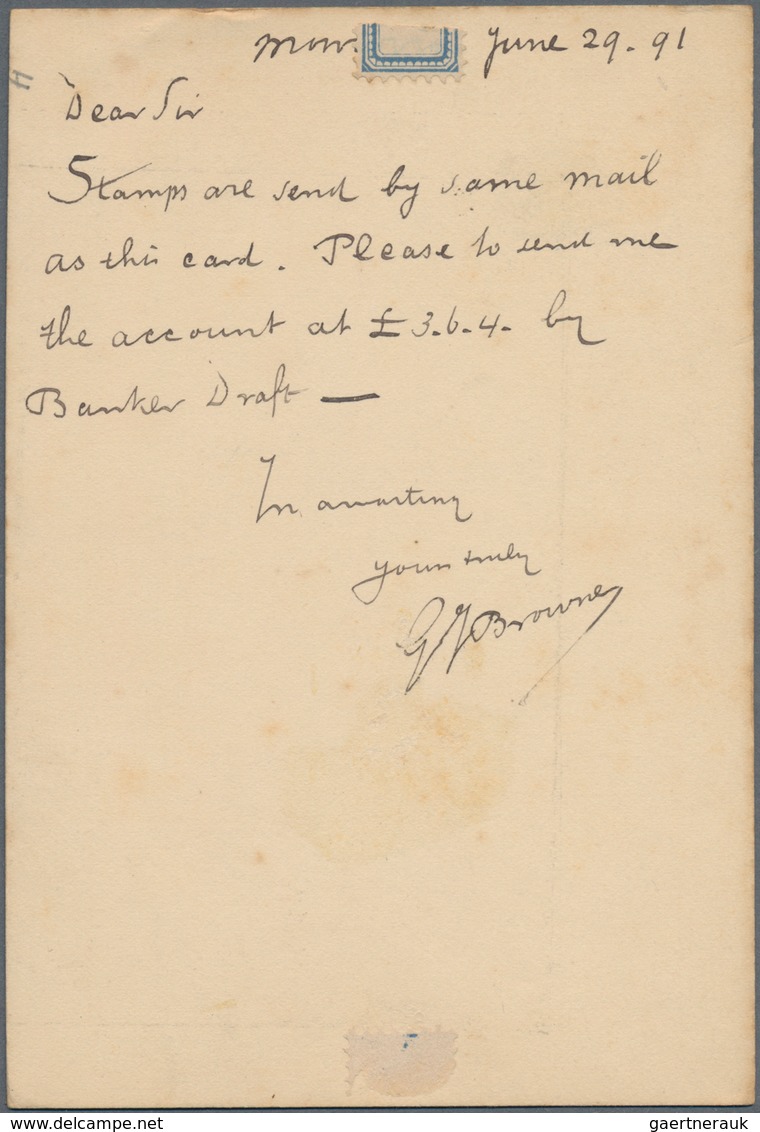 June 29. 91
Dear Sir
Stamps are send by same mail
as this card. Please to send me
the account at £3.6.4. by
Banker Draft —
In awaiting
yours truly
G J Browne
delcampe.net
gaertnerauk